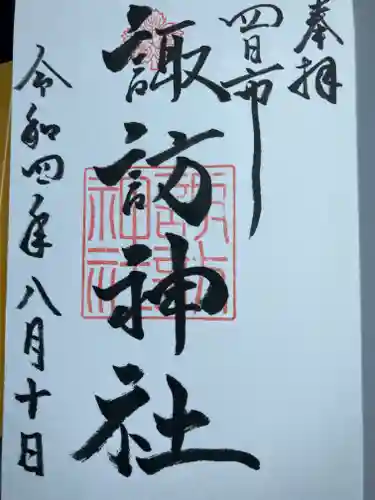 奉拝
四日市
諏訪神社
令和四年八月十日
諏訪神社